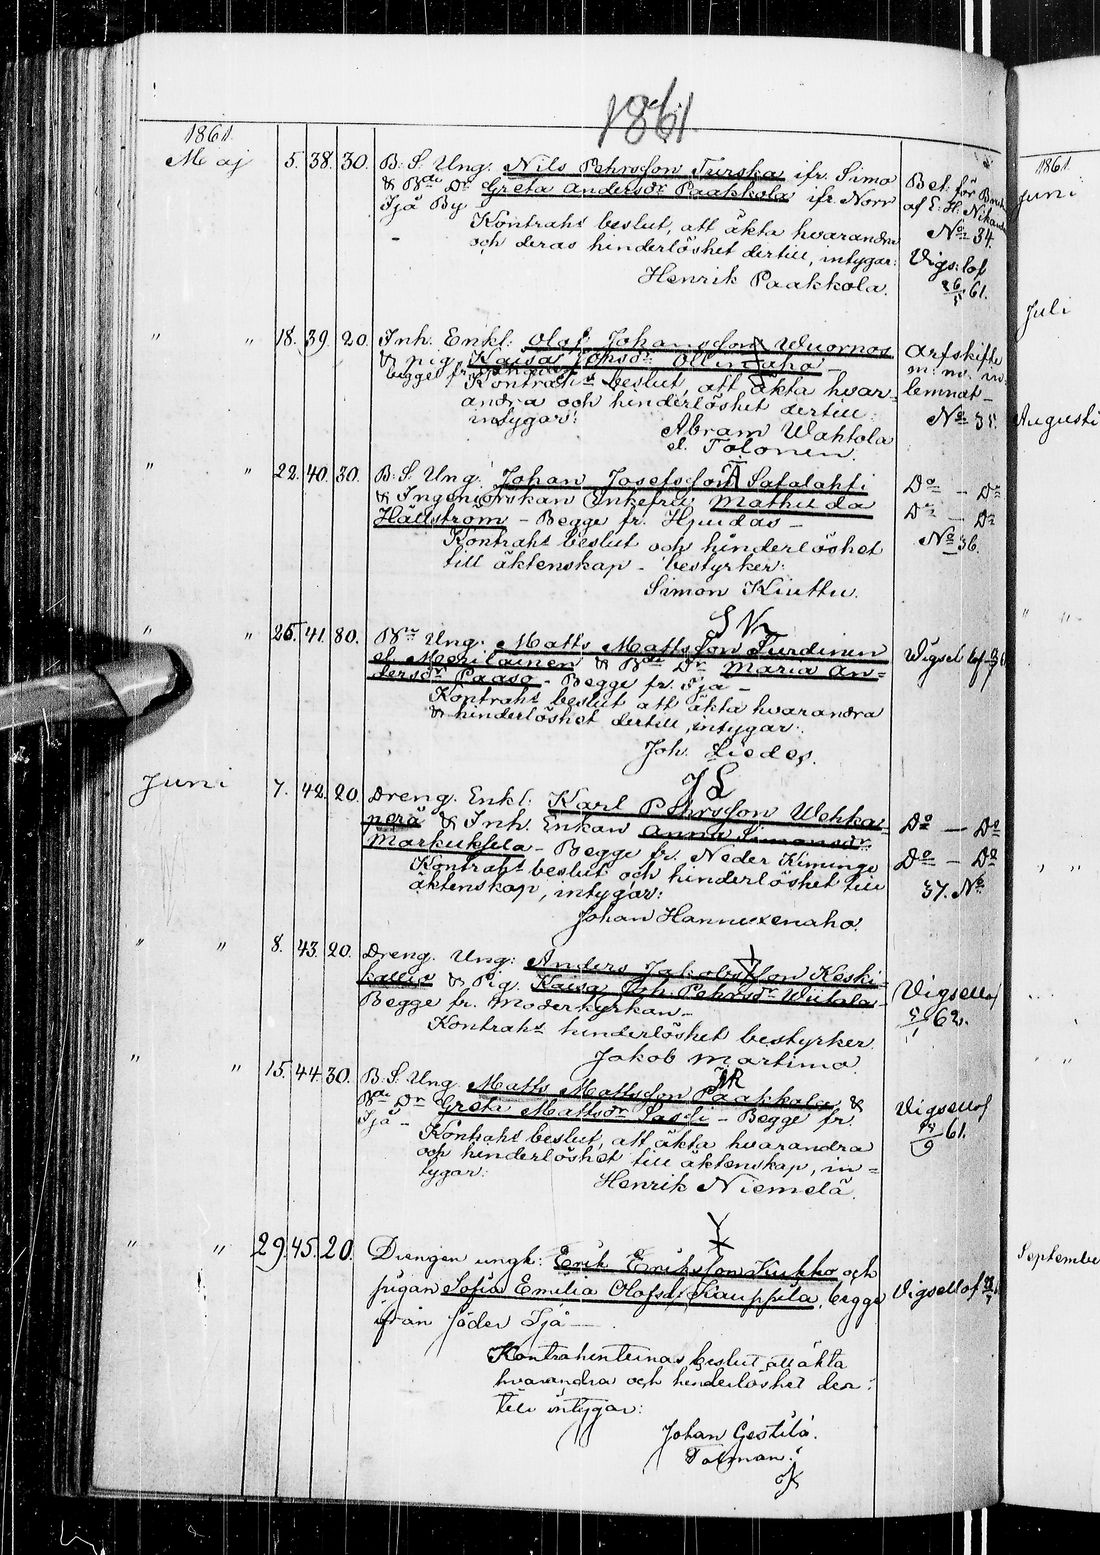 1861
1861.
Maj 5. 38. 30. B: S: Ung. Nils Pehrsson Turska ifr. Simo
& Bde Dr Greta Andersdr Paakkola ifr. Norr
Ijä By
Kontrahs beslut, att äkta hvarandra
och deras hinderlöshet dertill, intygar:
Henrik Paakkola.
Bet. för
af E: H:
No 34.
Vigs: lof
26/5 61.
" " 18. 39. 20. Inh. Enkl: Olof Johansson Wuornos
& pig. Kaisa Johsdr
begge fr.
Kontrahs beslut, att äkta hvar-
andra och hinderlöshet dertill
intygar:
Abram Wahtola
el. Tolonen.
Arfskifte
m. m.
lemnat
No 35.
" " 22. 40. 30. B: S. Ung. Johan Josefsson Satalahti
& Ingeniörskan Enkefru Mathilda
Hällström – Begge fr. Hjuidas –
Kontrahs beslut och hinderlöshet
till äktenskap – bestyrker:
Simon Kiuttu.
Do – Do
Do – Do
No 36.
SK
" " 25. 41. 80. Bde Ung. Matts Mattsson Turdinen
el. Meriläinen & Bde Dr Maria An-
dersdr Paaso – Begge fr. Ijä –
Kontrahs beslut att äkta hvarandra
& hinderlöshet dertill, intygar:
Joh. Liedes.
Vigsel lof
JL
Juni 7. 42. 20. Dreng. Enkl: Karl Pehrsson Wehka-
perä & Inh. Enkan Anna Simonsdr
Markuksela – Begge fr. Neder Kiminge
Kontrahs beslut och hinderlöshet till
äktenskap, intygar:
Johan Hannuxenaho.
Do – Do
Do – Do
37. No
" " 8. 43. 20. Dreng. Ung: Anders Jakobsson Keski-
kallio & Pig. Kaisa Joh: Pehrsdr Wiitala
Begge fr. Moderkyrkan –
Kontrahs hinderlöshet bestyrker
Jakob Martimo.
Vigsellof
5/1 62.
JR
" " 15. 44. 30. B. S. Ung. Matts Mattsson Paakkola &
Bde Dr Greta Mattsdr Sassi – Begge fr.
Ijä –
Kontrahs beslut, att äkta hvarandra
och hinderlöshet till äktenskap, in-
tygar:
Henrik Niemelä.
Vigsellof
/9 61.
" " 29. 45. 20. Drengen ungk: Erik Eriksson Kukko och
pigan Sofia Emilia Olofsdr Kauppila, begge
ifrån Söder Ijä –
Kontrahenternas beslut att äkta
hvarandra och hinderlöshet der-
till intygar:
Johan Gestilä.
Tolman.
Vigsellof
1861
Juni
Juli
Augusti
September